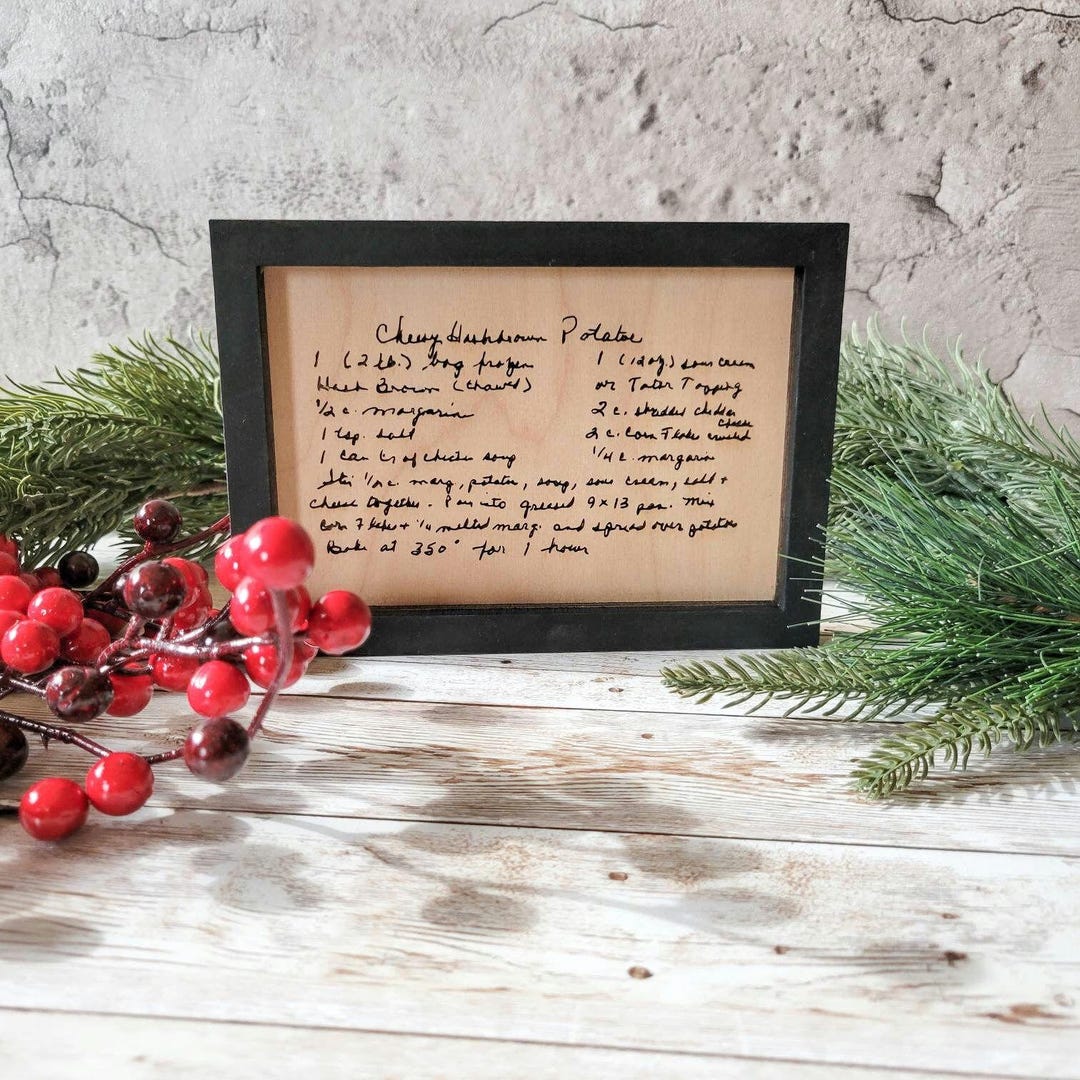 Cheesy Hashbrown Potatoes
1 (2 lb.) bag frozen
Hash Brown (thawed)
1/2 c. margarin
1 tsp. salt
1 can cr of chicken soup
1 (12 oz.) sour cream
or Tater Topping
2 c. shredded chedder cheese
2 c. Corn Flakes crushed
1/4 c. margarin
Stir 1/2 c. marg, potatoes, soup, sour cream, salt +
cheese together. Put into greased 9x13 pan. Mix
corn Flakes + 1/4 melted marg. and spread over potatoes
Bake at 350° for 1 hour